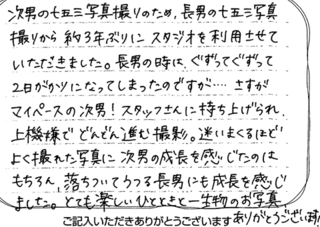 次男の七五三写真撮りのため、長男の七五三写真
撮りから約3年ぶりにスタジオを利用させて
いただきました。長男の時は、ぐずってぐずって
2日がかりになってしまったのですが… さすが
マイペースの次男！スタッフさんに持ち上げられ、
上機嫌でどんどん進む撮影。迷いまくるほど
よく撮れた写真に次男の成長を感じたのは
もちろん、落ちついてうつる長男にも成長を感じ
ました。とても楽しいひとときと一生物のお写真、
ご記入いただきありがとうございます ありがとうございます!!